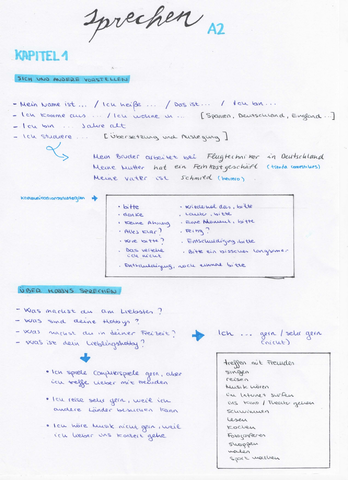 Sprechen A2
KAPITEL 1
SICH UND ANDERE VORSTELLEN
- Mein Name ist ... / Ich heiße ... / Das ist ... / Ich bin ...
- Ich komme aus ... / Ich wohne in ... [Spanien, Deutschland, England...]
- Ich bin ... Jahre alt
- Ich studiere ... [Übersetzung und Auslegung]
Mein Bruder arbeitet bei Flugtechniker in Deutschland
Meine Mutter hat ein Fachgeschäft
Meine Vater ist Schmied (herrero)
• bitte
• danke
• Keine Ahnung
• Alles klar?
• Wie bitte?
• Das verstehe ich nicht
• Entschuldigung, noch einmal bitte
• Wiederhol das, bitte
• lauter, bitte
• Eine Moment, bitte
• Fertig?
• Entschuldigung bitte
• Bitte ein bisschen langsamer
ÜBER HOBBYS SPRECHEN
- Was machst du am Liebsten?
- Was sind deine Hobbys?
- Was machst du in deiner Freizeit?
- Was ist dein Lieblingshobby?
Ich ... gern / sehr gern
(nicht)
• Ich spiele Computerspiele gern, aber
ich treffe lieber mit Freunden
• Ich reise sehr gern, weil ich
andere Länder besuchen kann
• Ich höre Musik nicht gern, weil
ich lieber ins Konzert gehe
treffen mit Freunden
singen
reisen
Musik hören
im Internet surfen
ins Kino / Theater gehen
schwimmen
lesen
kochen
fotografieren
shoppen
malen
Sport machen